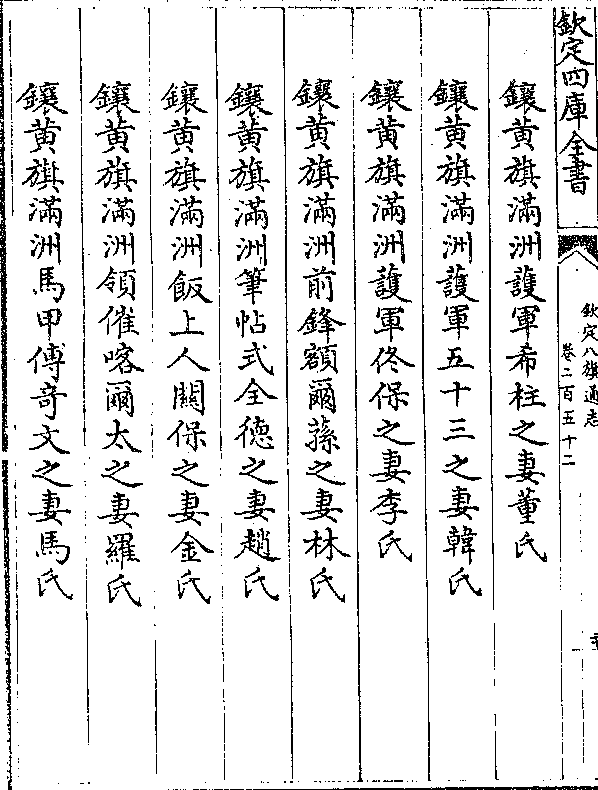 欽定四庫全書
欽定八旗通志
卷二百五十二
鑲黃旗滿洲護軍希柱之妻董氏
鑲黃旗滿洲護軍五十三之妻韓氏
鑲黃旗滿洲護軍佟保之妻李氏
鑲黃旗滿洲前鋒額爾蓀之妻林氏
鑲黃旗滿洲筆帖式全德之妻趙氏
鑲黃旗滿洲飯上人關保之妻金氏
鑲黃旗滿洲領催喀爾太之妻羅氏
鑲黃旗滿洲馬甲傅奇文之妻馬氏